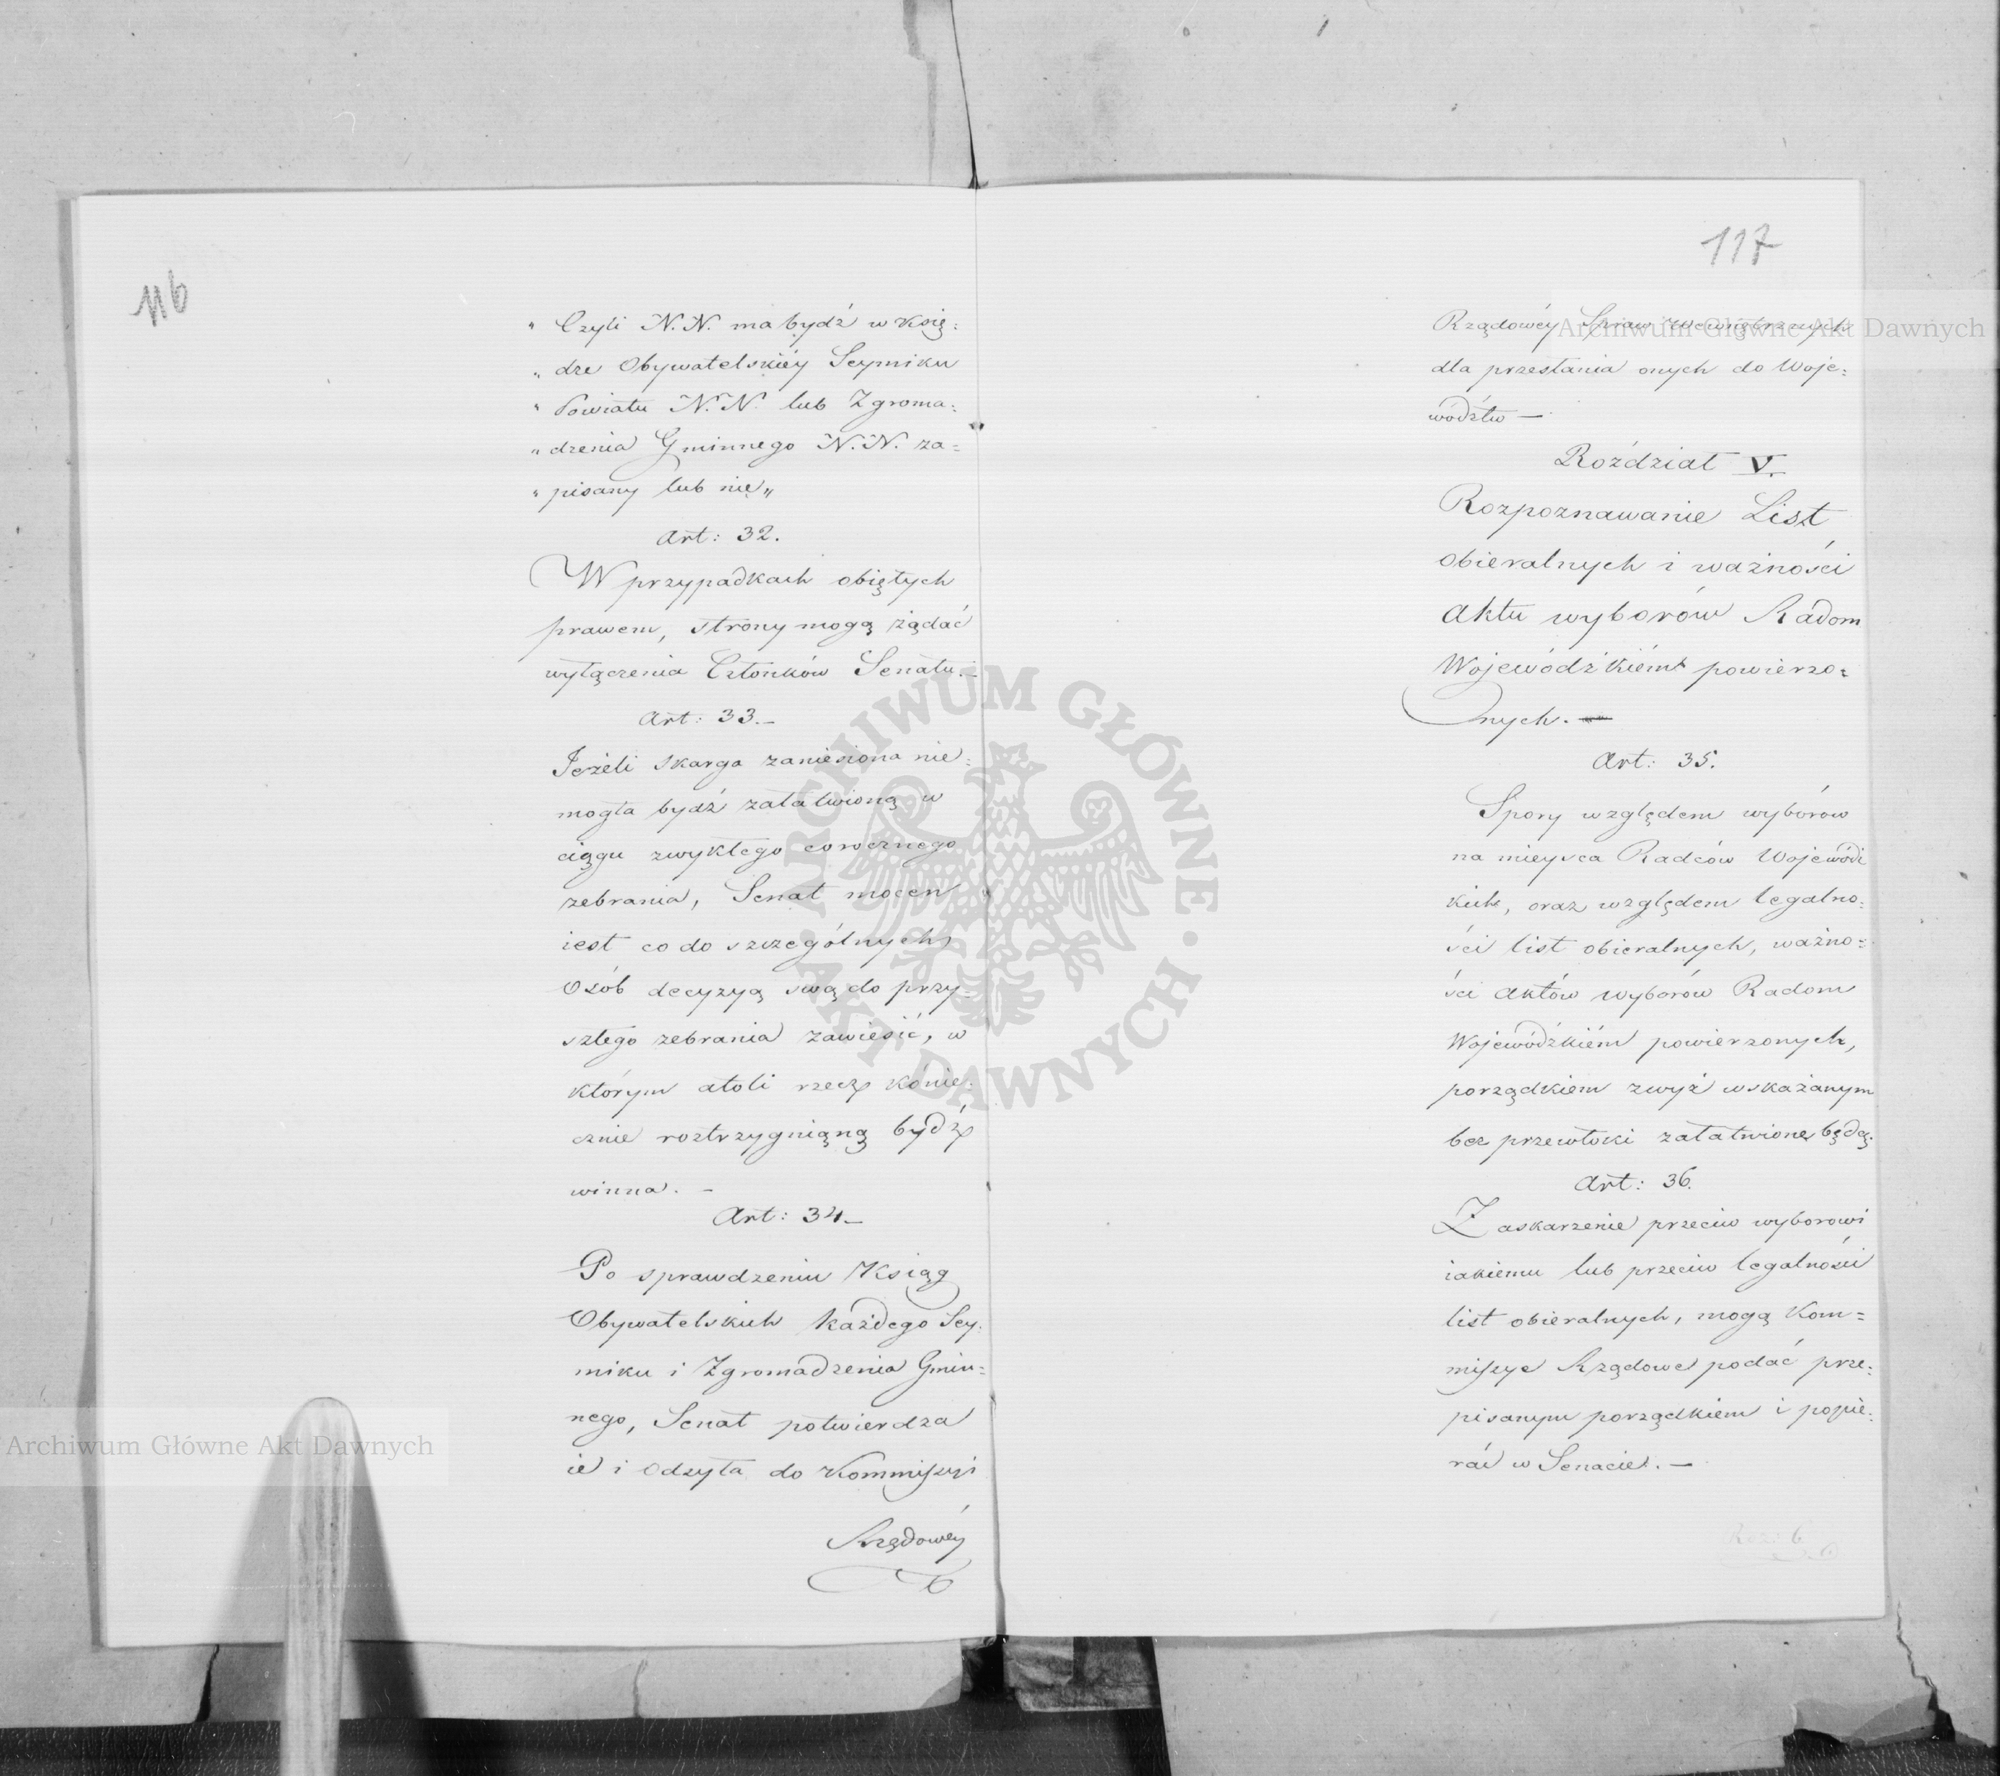 116
„ Czyli N.N. ma bydź w Księ:
„ dze Obywatelskiéy Seymiku
„ Powiatu N.N. lub Zgroma:
„ dzenia Gminnego N.N. za=
„ pisany lub nie„
Art: 32.
W przypadkach obiętych
prawem, strony mogą żądać
wyłączenia Członków Senatu.—
Art: 33.—
Jeżeli skarga zaniesiona nie=
mogła bydź załatwioną w
ciągu zwykłego corocznego
zebrania, Senat mocen
iest co do szczególnych
Osób decyzyą swą do przy=
szłego zebrania zawiesić, w
którym atoli rzecz konie:
cznie roztrzygniąną bydź
winna. —
Art: 34—
Po sprawdzeniu Ksiąg
Obywatelskich każdego Sey:
miku i Zgromadzenia Gmin=
nego, Senat potwierdza
ie i odsyła do Kommissyi
Rządowéy
117
Rządowéy Spraw Wewnętrznych
dla przesłania onych do Woje:
wództw —
Roździał V.
Rozpoznawanie List
obieralnych i ważności
aktu wyborów Radom
Wojewódzkiém powierzo=
nych. —
Art: 35.
Spory względem wyborów
na mieysca Radców Wojewódz
kich, oraz względem legalno:
ści list obieralnych, ważno=
ści aktów wyborów Radom
Wojewódzkiém powierzonych,
porządkiem zwyż wskazanym
bez przewłoki załatwione będą.
Art: 36.
Zaskarzenie przeciw wyborowi
iakiemu lub przeciw legalności
list obieralnych, mogą Kom=
missye Rządowe podać prze:
pisanym porządkiem i popie:
rać w Senacie. —
Archiwum Główne Akt Dawnych
Archiwum Główne Akt Dawnych
ARCHIWUM GŁÓWNE
· AKT DAWNYCH ·